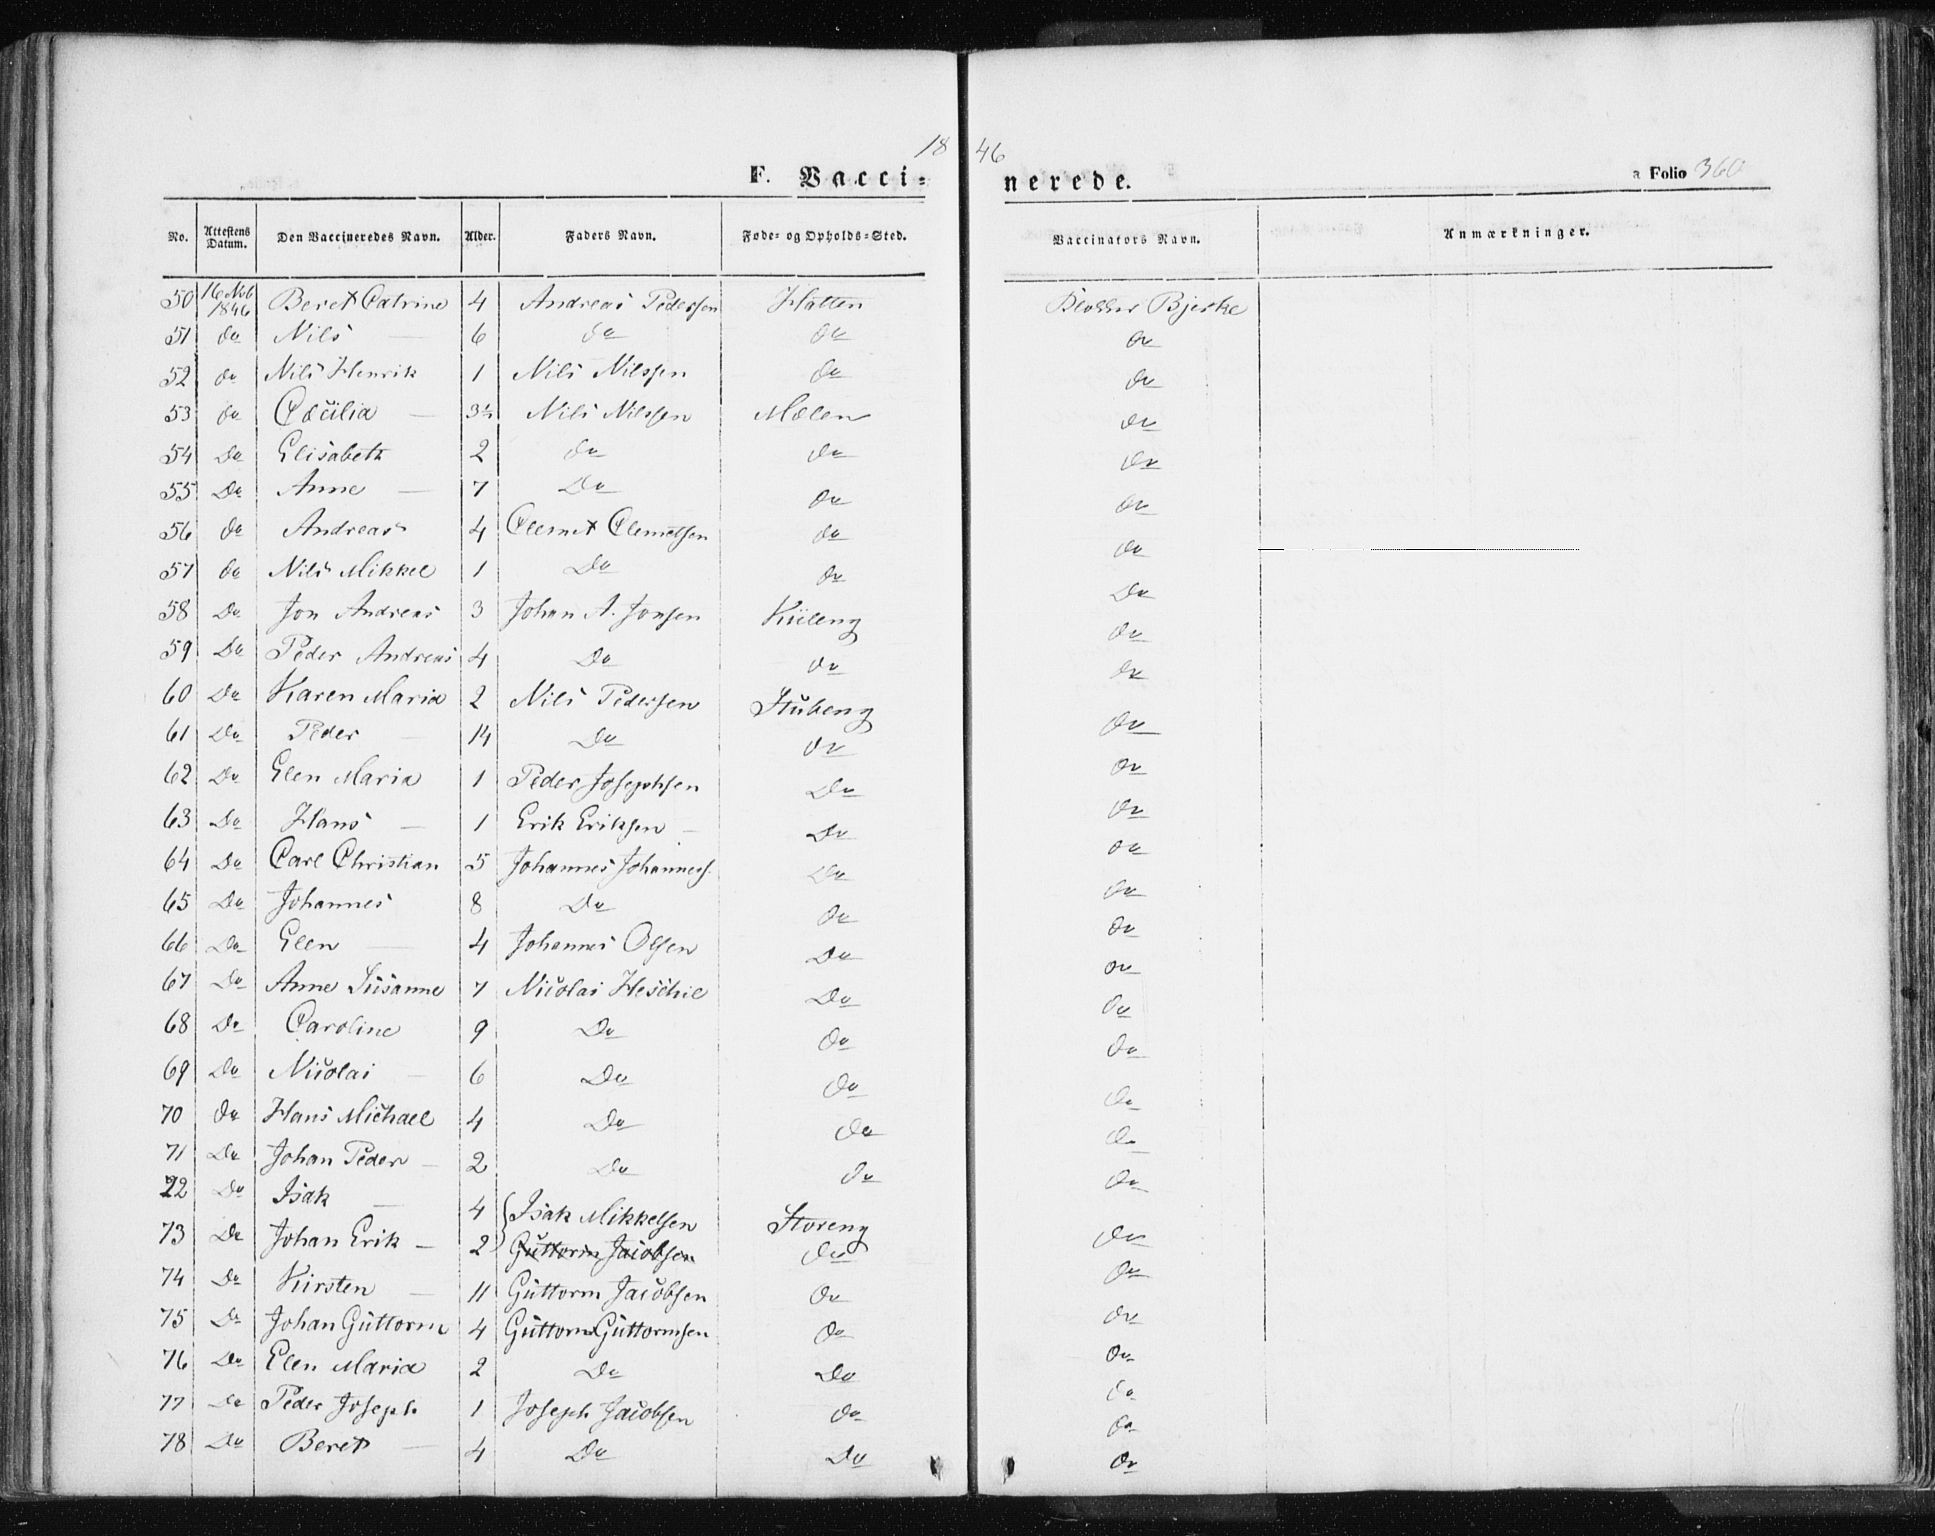 1846
F. Vaccinerede. a Folio 360
No. Attestens Datum. Den Vaccineredes Navn. Alder. Faders Navn. Føde- og Opholds-Sted. Vaccinators Navn. Anmærkninger.
50 16 Nvb 1846 Beret Catrine 4 Andreas Pederssen Hatten Bjerke
51 do Nils — 6 do do do
52 do Nils Henrik 1 Nils Nilssen do do
53 do Cæcilia — 3½ Nils Nilssen Mælen do
54 Do Elisabeth 2 do do do
55 Do Anne — 7 Do do do
56 do Andreas 4 Clemet Clemetsen do do
57 do Nils Mikkel 1 Do do Do
58 Do Jon Andreas 3 Johan A. Jonsen Kiileng do
59 Do Peder Andreas 4 Do do do
60 Do Karen Maria 2 Nils Pederssen Stubeng do
61 Do Peder — 14 Do do do
62 Do Elen Maria 1 Peder Josephsen Do do
63 Do Hans — 1 Erik Eriksen — Do do
64 Do Carl Christian 5 Johannes Johanness. Do do
65 Do Johannes 8 Do do do
66 Do Elen — 4 Johannes Olsen Do do
67 Do Anne Susanne 7 Nicolai Heschil Do do
68 Do Caroline 9 Do do do
69 Do Nicolai — 6 Do do do
70 do Hans Michael 4 Do do do
71 Do Johan Peder — 2 Do do do
72 Do Isak — 4 Isak Mikkelsen Storeng do
73 Do Johan Erik — 2 Guttorm Jacobsen do do
74 Do Kirsten — 11 Guttorm Jacobsen do do
75 Do Johan Guttorm 4 Guttorm Guttormsen do do
76 Do Elen Maria 2 Do Do do
77 Do Peder Joseph 1 Joseph Jacobsen do do
78 Do Beret — 4 Do Do do